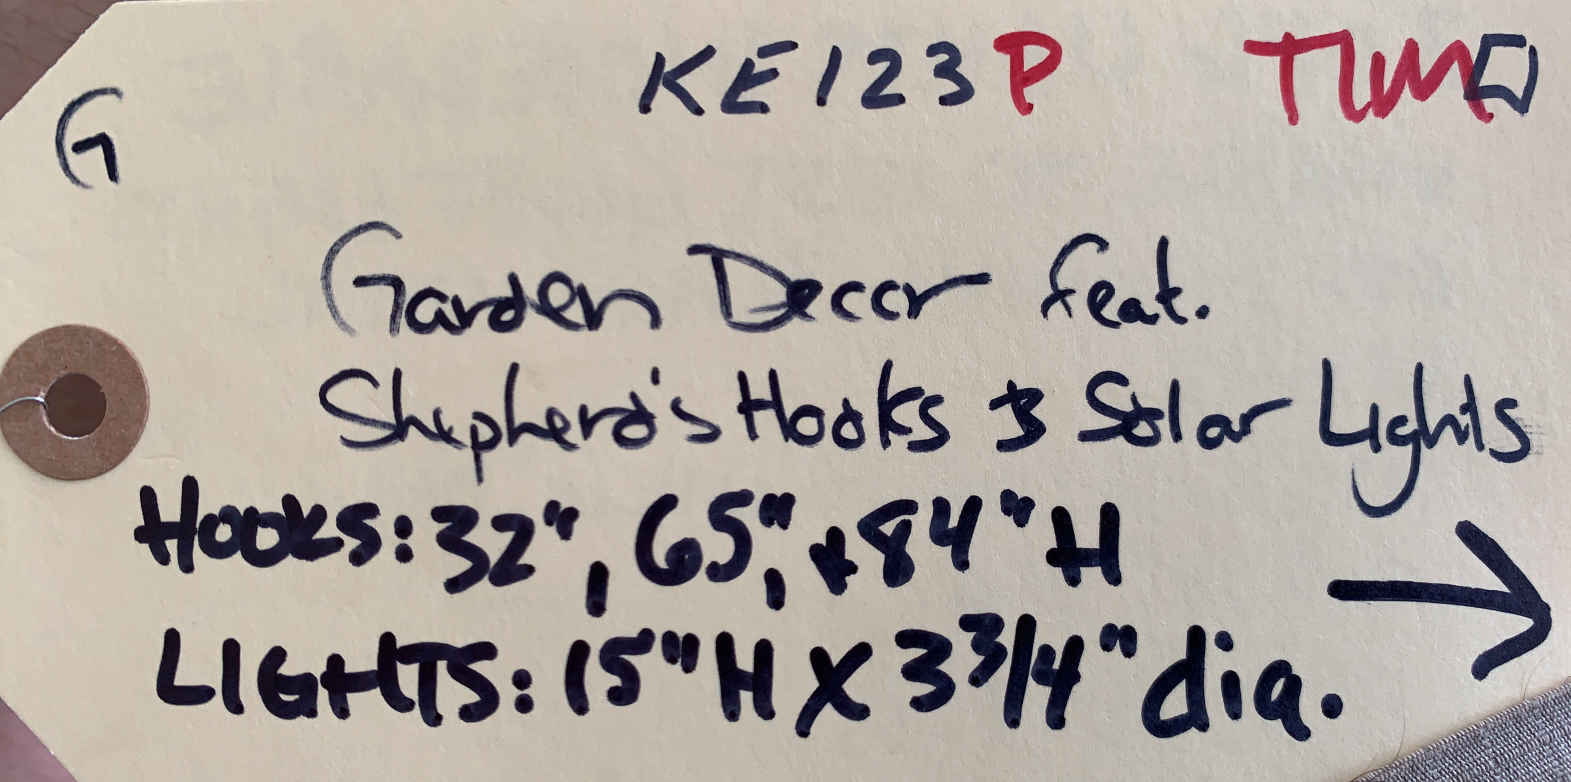 KE123P TLM
G
Garden Decor feat.
Shepherd's Hooks & Solar Lights
HOOKS: 32", 65", + 84" H
LIGHTS: 15" H X 3 3/4" dia.